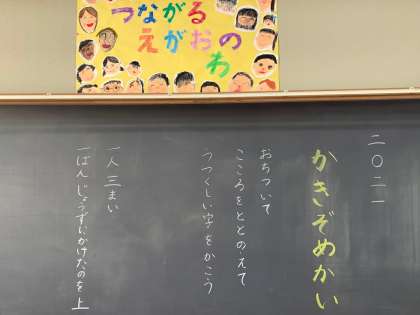 つながる
えがおの
わ
二〇二一
かきぞめかい
おちついて
こころをととのえて
うつくしい字をかこう
一人三まい
一ばんじょうずにかけたのを上